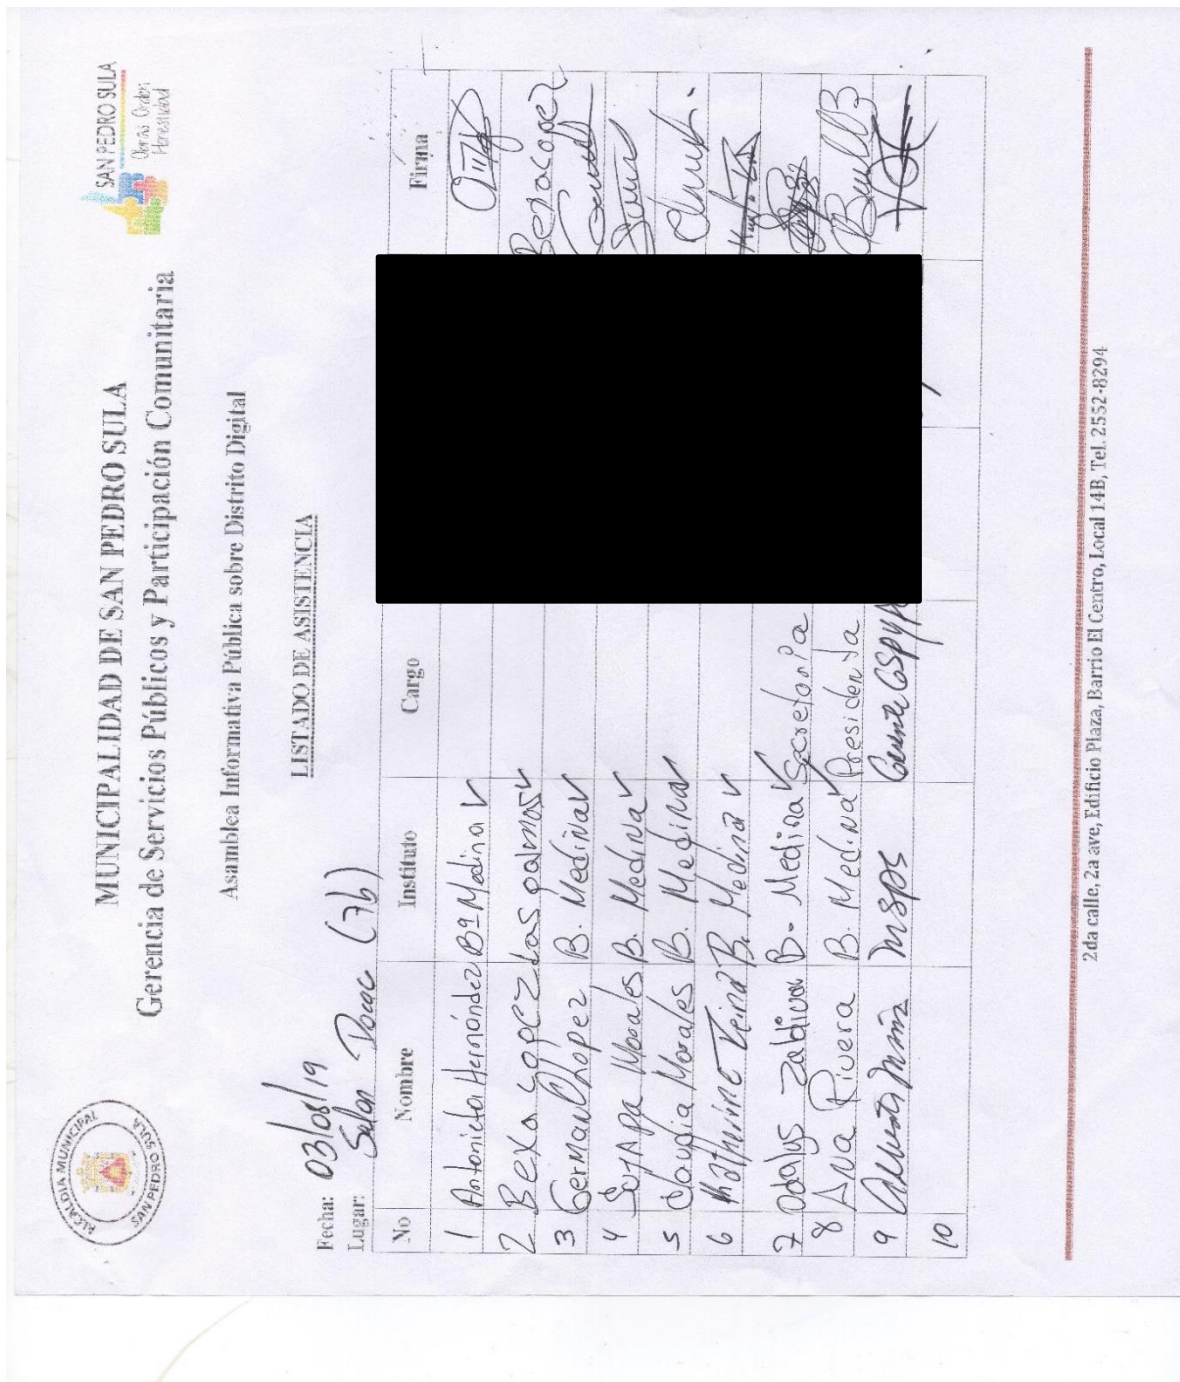 SAN PEDRO SULA
Obras Orden
Honestidad
ALCALDIA MUNICIPAL
SAN PEDRO SULA
MUNICIPALIDAD DE SAN PEDRO SULA
Gerencia de Servicios Públicos y Participación Comunitaria
Asamblea Informativa Pública sobre Distrito Digital
LISTADO DE ASISTENCIA
Fecha: 03/08/19
Lugar: Salon (7b)
No Nombre Instituto Cargo Firma
1 Antonieta Hernández Bº Medina
2 Bexa Lopez Las palmas
3 German Lopez B. Medina
4 Morales B. Medina
5 Claudia Morales B. Medina
6 Katherine B. Medina
7 Odalys Zaldivar B. Medina Secretaria
8 Ana Rivera B. Medina Presidenta
9 MSPS Gerente
10
2da calle, 2a ave, Edificio Plaza, Barrio El Centro, Local 14B, Tel. 2552-8294